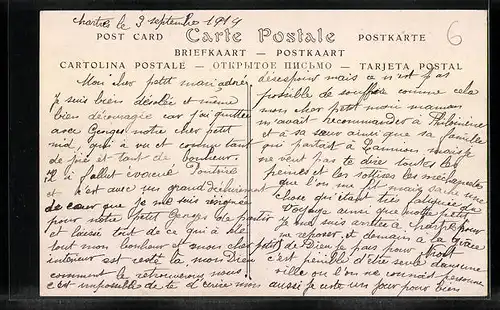 Chartres le 3 septembre 1914
Carte Postale
POST CARD
POSTKARTE
BRIEFKAART — POSTKAART
CARTOLINA POSTALE — ОТКРЫТОЕ ПИСЬМО — TARJETA POSTAL
6
Mon cher petit mari adoré
Je suis bien désolée et même
bien découragée car j'ai quittée
avec Georges notre cher petit
nid, qui a vu et connu tant
de joie et tant de bonheur.
Il a fallut évacué Pontoise
et c'est avec un grand déchirement
de cœur que je me suis résignée
pour notre petit Georges de partir
et laissé tout de ce qui a été
tout mon bonheur et mon cher petit
intérieur est resté là mon Dieu
comment le retrouverons nous
c'est impossible de te d'écrire mon
désespoir mais ce n'est pas
possible de souffrir comme cela
mon cher petit moi maman
m'avait recommander à Philomène
et à sa sœur ainsi que sa famille
qui partait à Lannion mais je
ne veut pas te dire toutes les
peines et les sottises les méchancetés
que l'on me fit mais
chose qui étant très fatiguée du
voyage ainsi que notre petit
Je me suis arrêtée à Chartres pour
me reposer, et demain à la grâce
de Dieu Je pars pour Niort
c'est pénible d'être seule dans une
ville ou l'on ne connait personne
aussi je reste un jour pour bien